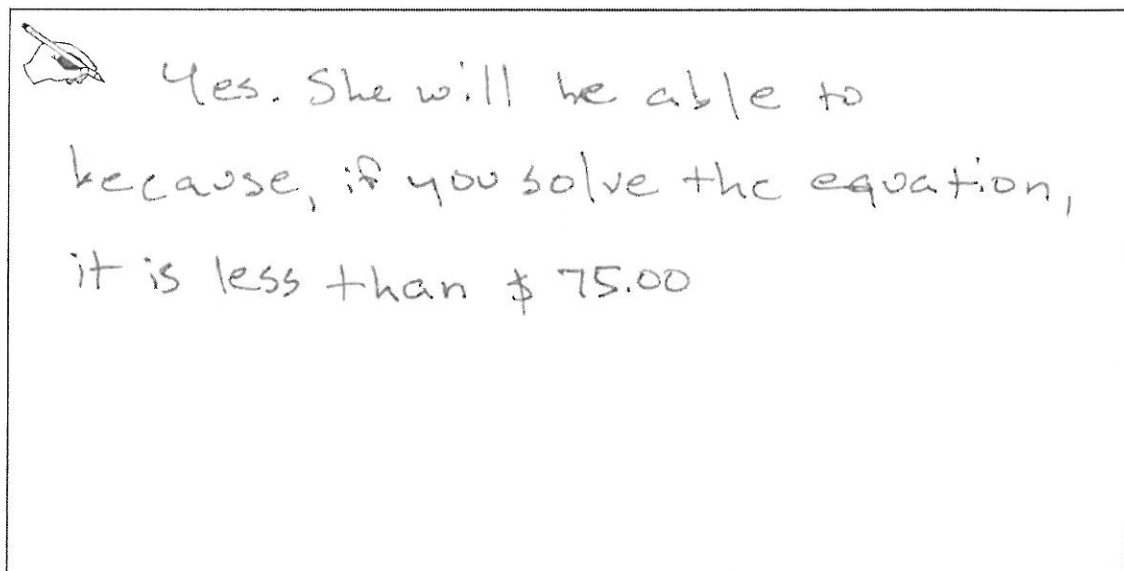 Yes. She will be able to
because, if you solve the equation,
it is less than $ 75.00